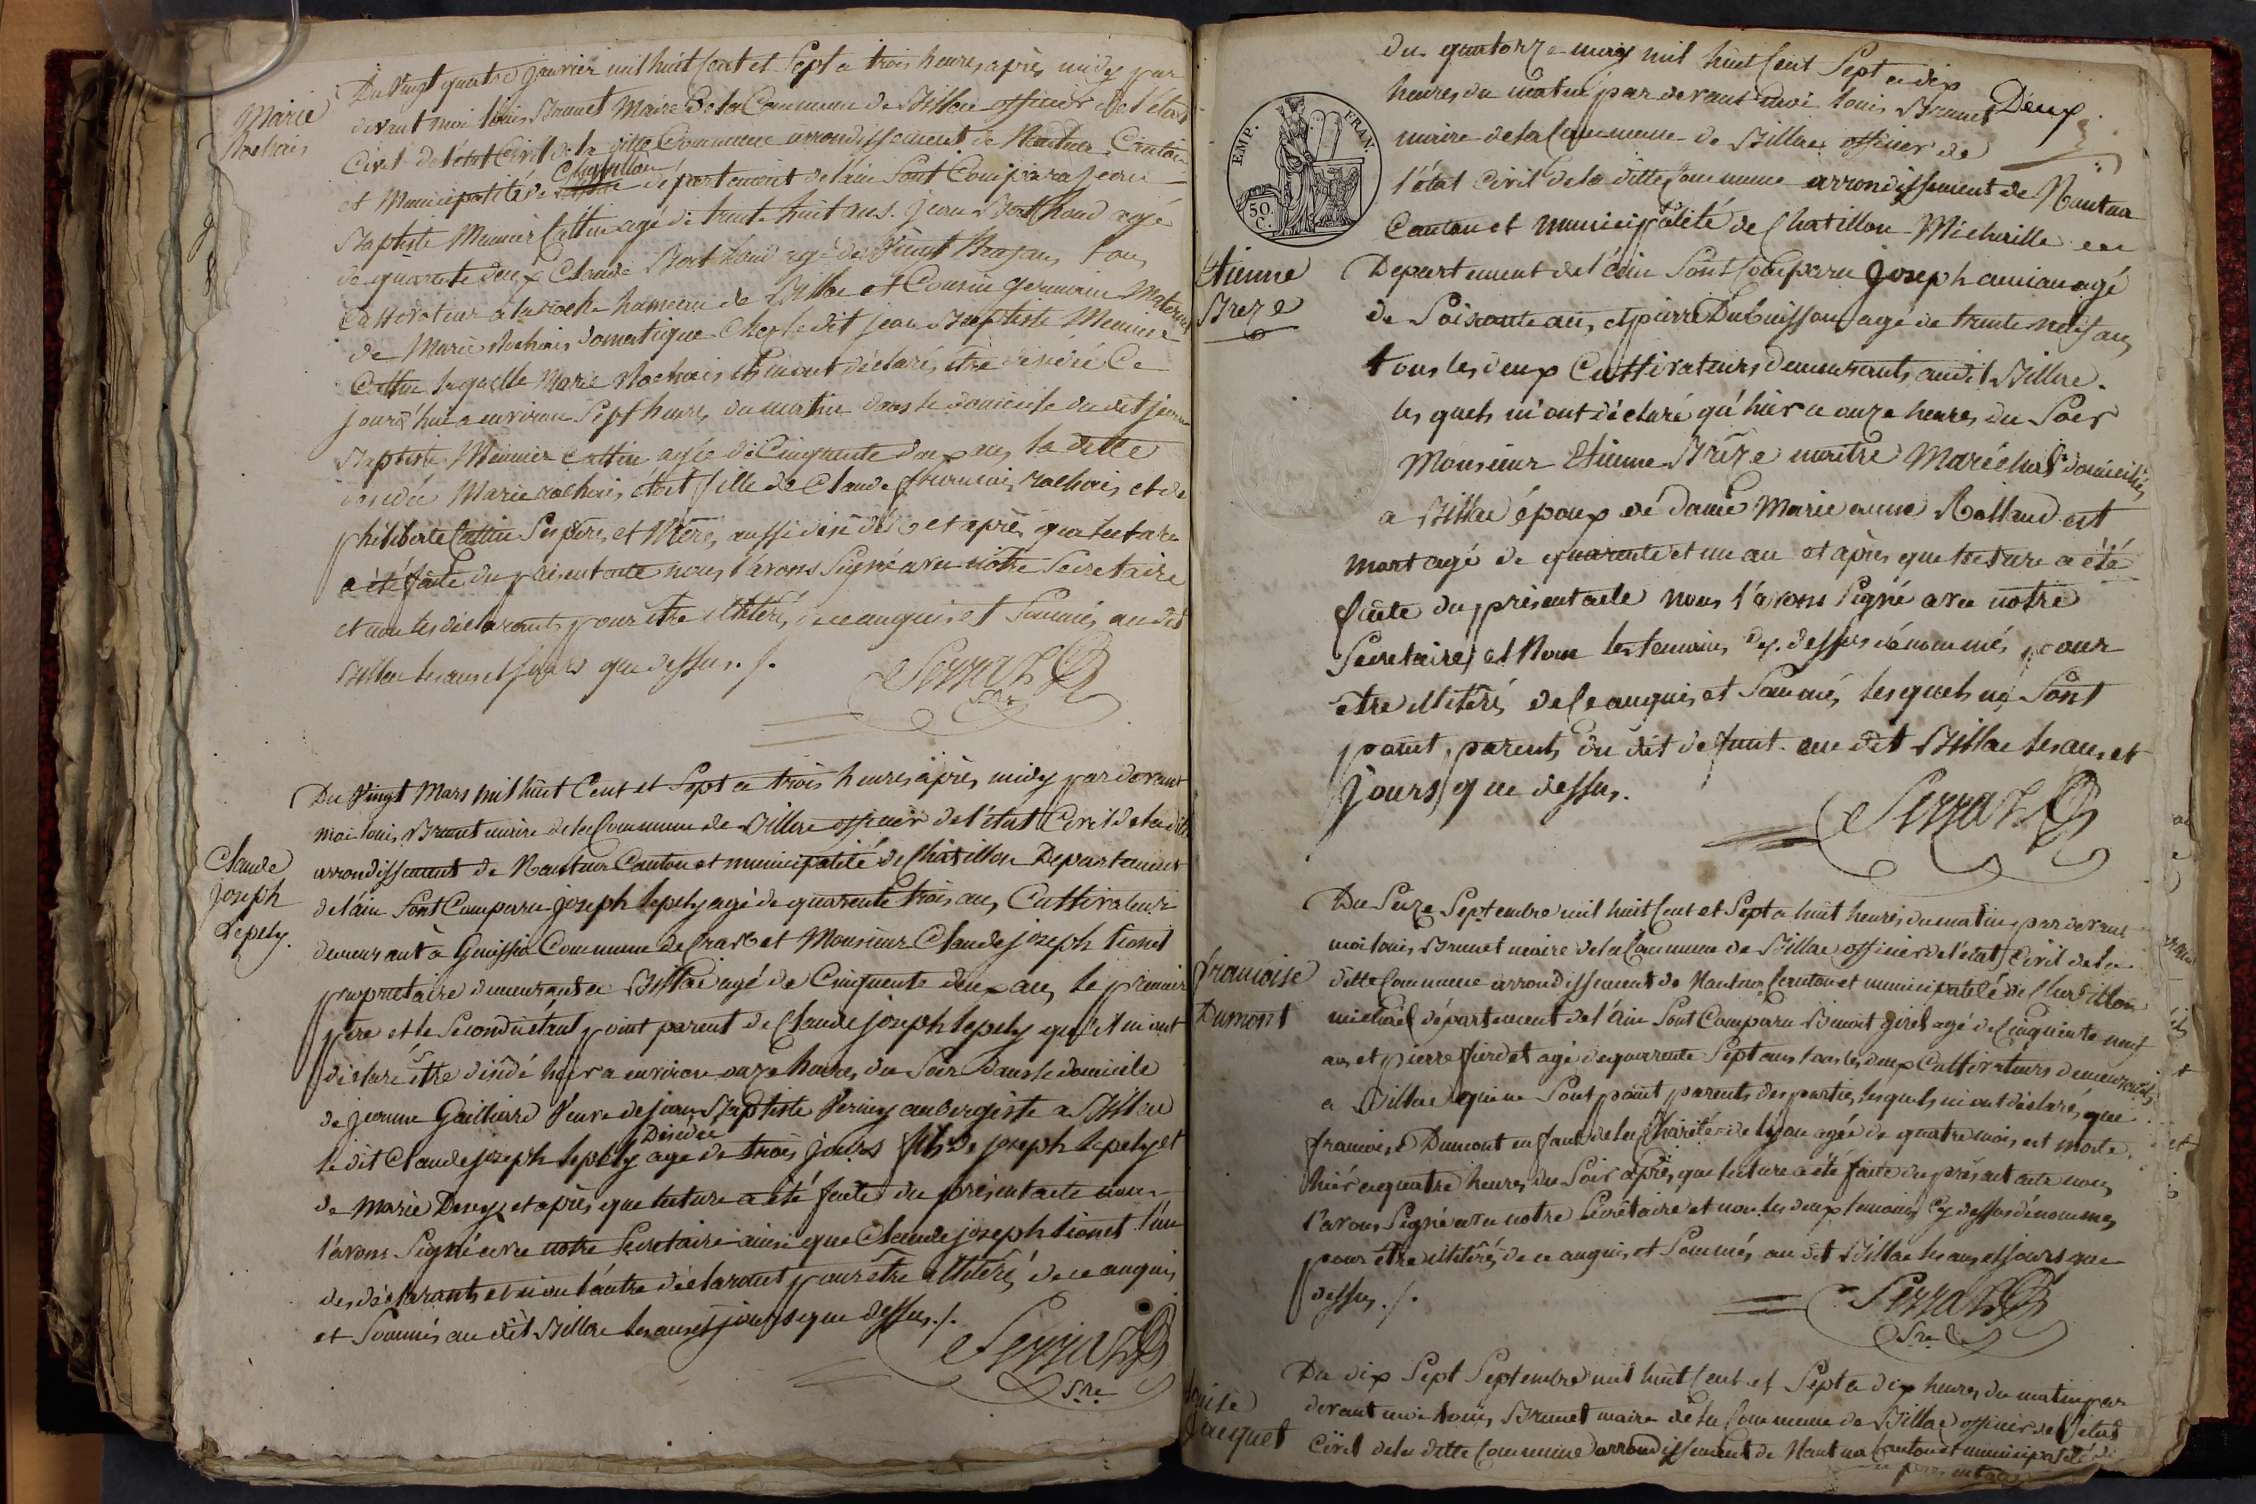 Marie
Rochais
Du vingt quatre janvier mil huit Cent et Sept a trois heures après midy par
devant moi louis Brunet Maire de la Commune de Billiac officier de l'état
Civil de l'état Civil de la ditte Commune arrondissement de Nantua Canton
et Municipalité de Chatillon département de l'ain Sont Comparu jean
Baptiste Meunier Cattin agé de trente huit ans. jean Berthoud agé
de quarante deux Claude Berthoud agé de Vingt trois ans tous
Cattivateur a la roche hameau de Billiac et Cousin germain Maternel
de Marie Rochais domestique Chez le dit jean Baptiste Meunier
Cattin laquelle Marie Rochais ils m'ont déclarés être décédée Ce
jourd'hui a environ Sept heures du matin dans le domicile du dit jean
Baptiste Meunier Cattin agée de Cinquante deux ans la ditte
décédée Marie rochais étoit fille de Claude françois rochais et de
philiberte Cattin Ses père et Mère, aussi décédés et après que lecture
a été faite du présent acte nous l'avons Signé avec notre Secretaire
et non les déclarants pour être illitérés de ce anquis et Sommés au dit
Billiac les ans et jours que dessus ./.
Serra
Sre
Claude
Joseph
Lepely.
Du Vingt Mars mil huit Cent et Sept a trois heures après midy par devant
moi louis Brunet maire de la Commune de Billiac officier de l'état Civil de la ditte
arrondissement de Nantua Canton et municipalité de Chatillon Departement
de l'ain Sont Comparu joseph lepely agé de quarante trois ans, Cattivateur
demeurant à Genissia Commune de Craz et Monsieur Claude joseph Lionet
proprietaire demeurant a Billiac agé de Cinquante deux ans, le premier
père et le Second n'étant point parent de Claude joseph lepely qu'ils m'ont
déclaré être décédé hier a environ onze heures du Soir dans le domicile
de jeanne Gailliard Veuve de jean Baptiste Berny aubergiste a Billiac
Décédée
le dit Claude joseph lepely agé de trois jours fils de joseph lepely et
de Marie Deny et après que lecture a été faite du présent acte nous
l'avons Signé avec notre Secretaire ainsi que Claude joseph Lionet l'un
des déclarants et non l'autre déclarant pour être illitéré de ce anquis
et Sommés au dit Billiac les ans et jours que dessus ./.
Serra
Sre
Deux
EMP. FRAN.
50.
C.
Etienne
Breze
du quatorze may mil huit Cent Sept a dix
heures du matin par devant moi louis Brunet
maire de la Commune de Billiac officier de
l'état Civil de la ditte Commune arrondissement de Nantua
Canton et municipalité de Chatillon Michaille
Departement de l'ain Sont Comparu Joseph agé
de Soixante ans, et pierre Dubuisson agé de trente neuf ans
tous les deux Cattivateurs demeurants au dit Billiac.
les quels m'ont déclaré qu'hier a onze heures du Soir
Monsieur Etienne Brèze maitre Maréchal domicilié
a Billiac époux de dame Marie anne Rolland est
mort agé de quarante et un an et après que lecture a été
faite du présent acte nous l'avons Signé avec notre
Secretaire, et Non les temoins dessus dénommés, pour
être illitérés de Ce anquis, et Sommés, les quels ne Sont
point parents du dit defunt au dit Billiac les ans et
jours que dessus.
Serra
françoise
Dumont
Du Seize Septembre mil huit Cent et Sept a huit heures du matin par devant
moi louis Brunet maire de la Commune de Billiac officier de l'état Civil de la
ditte Commune arrondissement de Nantua Canton et municipalité de Chatillon
michael département de l'ain Sont Comparu Benoit Girel agé de Cinquante neuf
ans et pierre agé de quarante Sept ans tous les deux Cattivateurs demeurants
a Billiac qui ne Sont point parents des parties lesquels m'ont déclarés que
françoise Dumont enfant de la Charité de lyon agée de quatre mois est morte
hier a quatre heures du Soir après que lecture a été faite du présent acte nous
l'avons Signé avec notre Secrétaire et non les deux temoins Cy dessus dénommés
pour être illitérés de ce anquis et Sommés au dit Billiac les ans et jours que
dessus ./.
Serra
Sre
louise
Jacquet
Du dix Sept Septembre mil huit Cent et Sept a dix heures du matin par
devant moi louis Brunet maire de la Commune de Billiac officier de l'état
Civil de la ditte Commune arrondissement de Nantua Canton et municipalité de